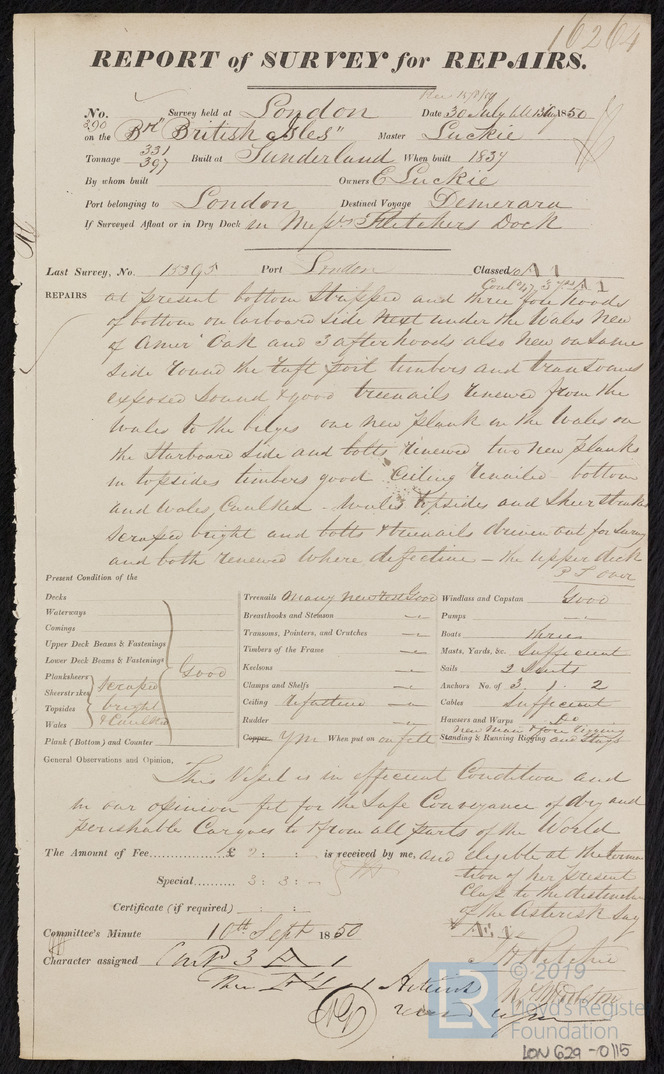 16264
REPORT of SURVEY for REPAIRS.
No. 390 Survey held at London Date 30 July till 1850
on the Br "British Isles" Master Luckie
Tonnage 331 397 Built at Sunderland When built 1837
By whom built Owners E Luckie
Port belonging to London Destined Voyage Demerara
If Surveyed Afloat or in Dry Dock in Messrs Fletchers Dock
Last Survey, No. 15395 Port London Classed A1
REPAIRS at present bottom stripped and three fore hoods
of bottom on larboard side next under the Wales New
of Amer Oak and 3 afterhoods also New on same
side round the tuft foil timbers and transoms
exposed sound & good treenails renewed from the
Wales to the bilges one new plank in the Wales on
the Starboard Side and bolts renewed two new planks
in topsides timbers good Ceiling renailed bottom
and Wales Caulked. Wales topsides and Sheerstrakes
scraped bright and bolts & treenails driven out for Survey
and both renewed where defective – the upper deck
P T over
Present Condition of the
Decks
Waterways
Comings
Upper Deck Beams & Fastenings
Lower Deck Beams & Fastenings
Planksheers
Sheerstrakes
Topsides
Wales
Plank (Bottom) and Counter
Good
scraped
bright
& Caulked
Treenails many new rest Good
Breasthooks and Stemson
Transoms, Pointers, and Crutches
Timbers of the Frame
Keelsons
Clamps and Shelfs
Ceiling refastened
Rudder
Copper YM When put on on felt
Windlass and Capstan Good
Pumps
Boats three
Masts, Yards, &c. Sufficient
Sails 2 Suits
Anchors No. of 3 . 1 . 2
Cables Sufficient
Hawsers and Warps Do
Standing & Running Rigging New Main & fore rigging and Stays
General Observations and Opinion,
This Vessel is in efficient Condition and
in our opinion fit for the Safe Conveyance of dry and
perishable Cargoes to & from all parts of the World
The Amount of Fee £ 2 : : is received by me, and eligible at the termina
Special 3 : 3 : – tion of her present
Certificate (if required) Class to the distinctn
of the Asterisk Say
* Æ 1
Committee's Minute 10th Sept 1850
Character assigned 1
© 2019
Lloyd's Register
Foundation
LR
LON 629-0115